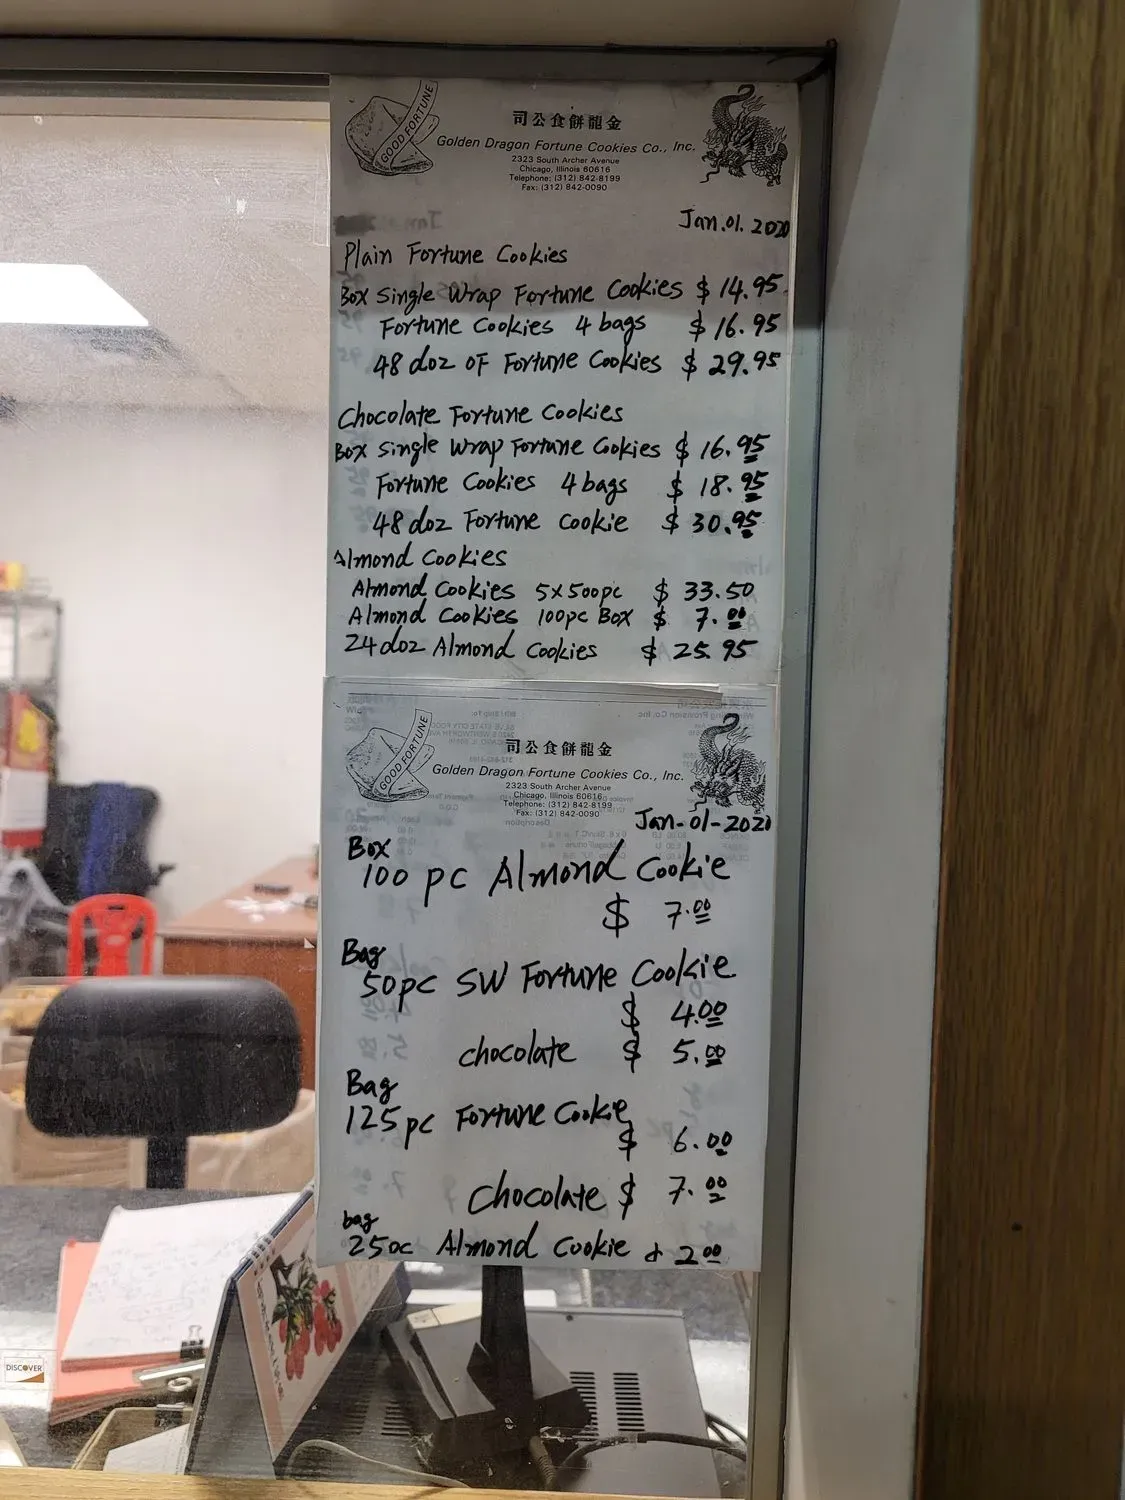 GOOD FORTUNE
司公食餅龍金
Golden Dragon Fortune Cookies Co., Inc.
2323 South Archer Avenue
Chicago, Illinois 60616
Telephone: (312) 842-8199
Fax: (312) 842-0090
Jan.01.2020
Plain Fortune Cookies
Box Single Wrap Fortune Cookies $14.95
Fortune Cookies 4 bags $16.95
48 doz OF Fortune Cookies $29.95
Chocolate Fortune Cookies
Box Single Wrap Fortune Cookies $16.95
Fortune Cookies 4 bags $18.95
48 doz Fortune Cookie $30.95
Almond Cookies
Almond Cookies 5x500pc $33.50
Almond Cookies 100pc Box $7.00
24 doz Almond Cookies $25.95
GOOD FORTUNE
司公食餅龍金
Golden Dragon Fortune Cookies Co., Inc.
2323 South Archer Avenue
Chicago, Illinois 60616
Telephone: (312) 842-8199
Fax: (312) 842-0090
Jan-01-2020
Box
100 pc Almond Cookie
$ 7.00
Bag
50pc SW Fortune Cookie
$ 4.00
chocolate $ 5.00
Bag
125pc Fortune Cookie
$ 6.00
Chocolate $ 7.00
bag
25pc Almond Cookie $ 2.00
DISCOVER